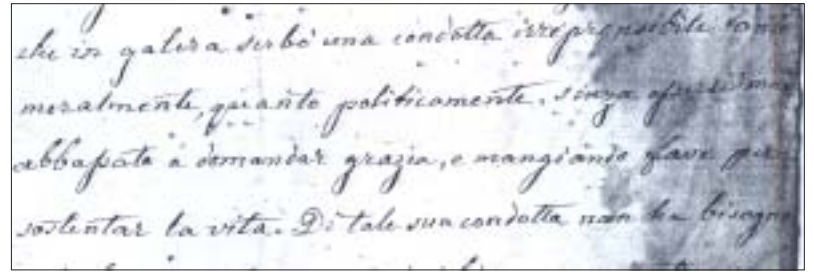 che in galera serbò una condotta irreprensibile tanto
moralmente, quanto politicamente, senza essersi mai
abbassato a domandar grazia, e mangiando fave per
sostentar la vita. Di tale sua condotta non ha bisogno